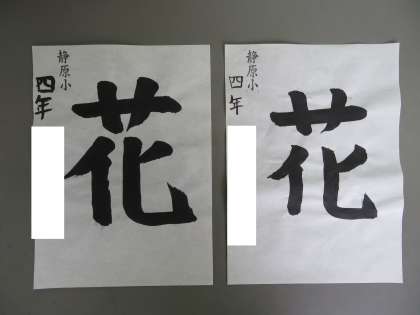 静原小
四年
花
静原小
四年
花